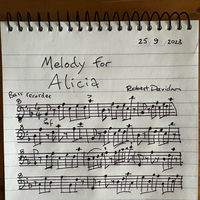 25. 9 2023
Melody for
Alicia
Bass recorder
Robert Davidson
sf